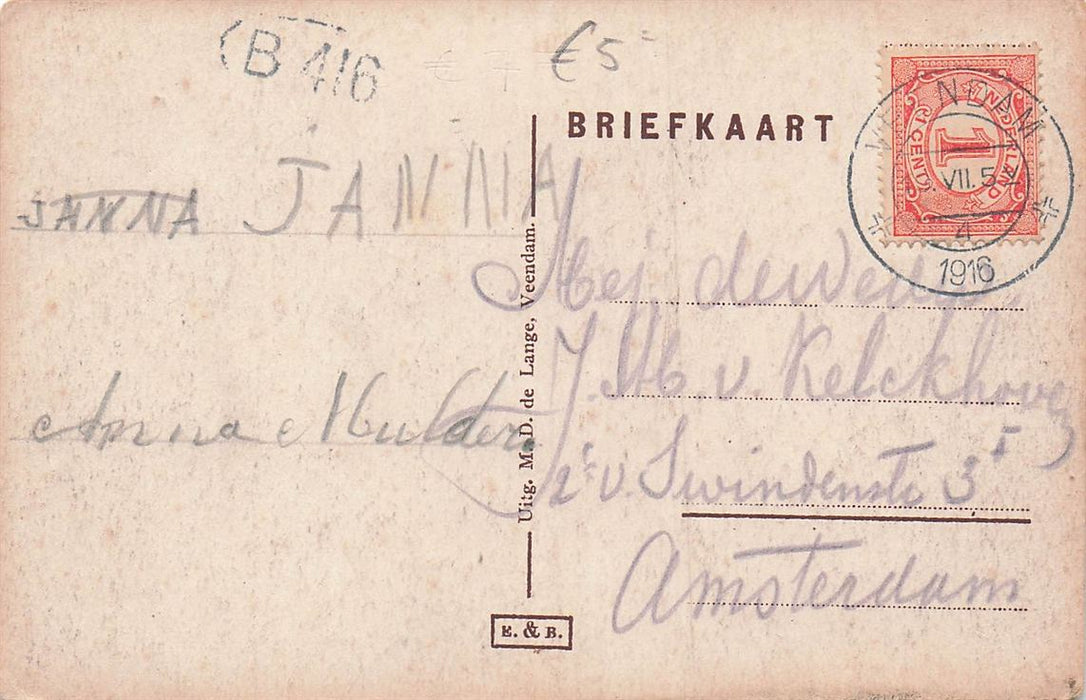 B 416
€5
BRIEFKAART
NEDERLAND
1
1 CENT
NDAM
VII. 5
4
1916
JANNA JANNA
Anna Mulder
Uitg. M. D. de Lange, Veendam.
Mej. de Wed.
J. v. Kelckhoven
2e v. Swindenstr 3 I
Amsterdam
E. & B.